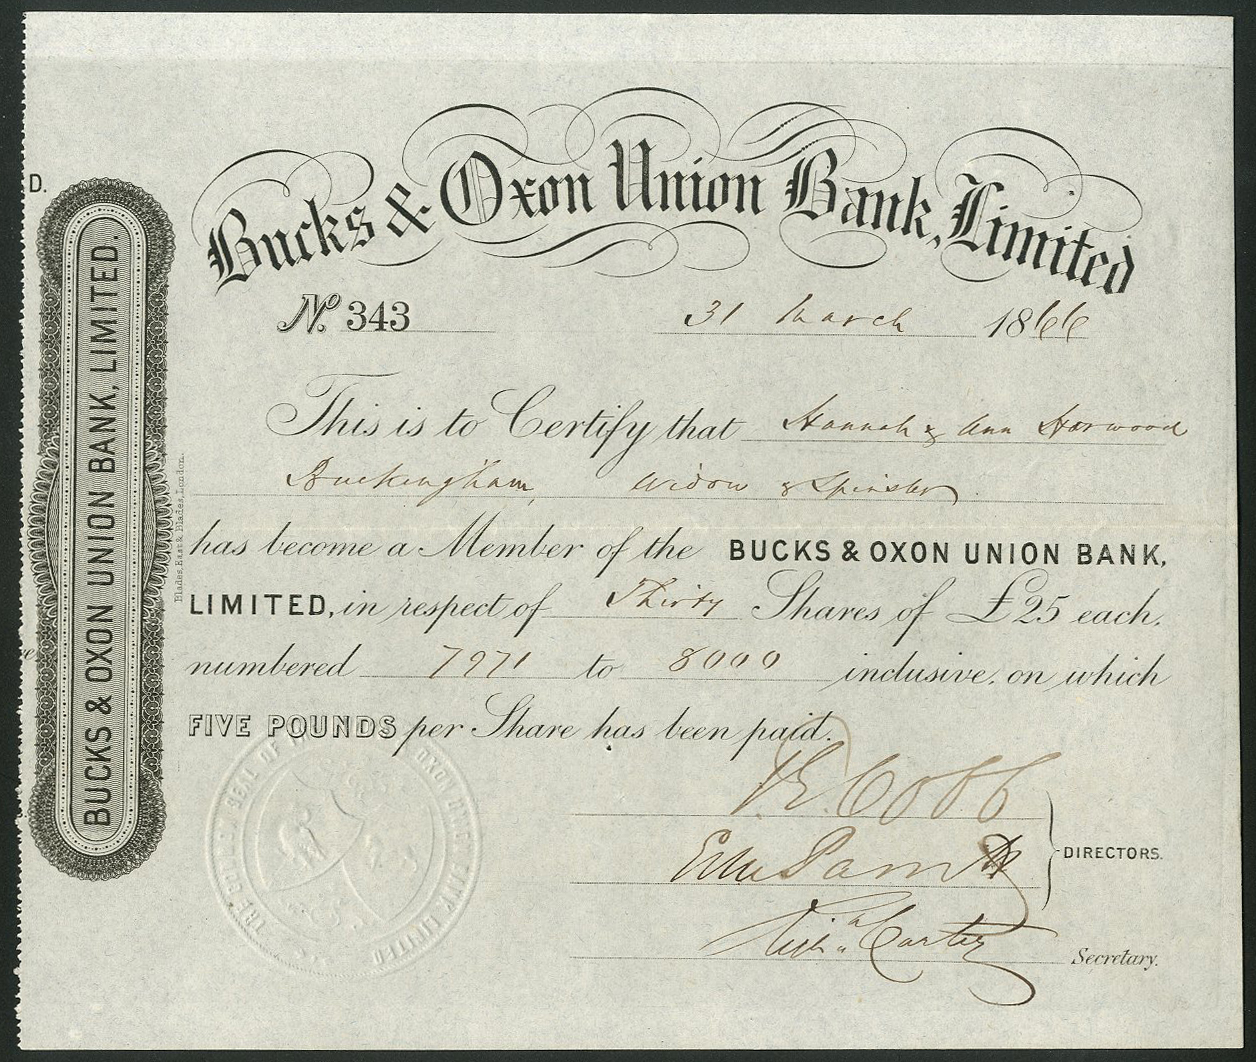 D.
BUCKS & OXON UNION BANK, LIMITED.
Blades, East & Blades, London.
Bucks & Oxon Union Bank, Limited
No. 343 31 March 1866
This is to Certify that Hannah & Ann Harwood
Buckingham, Widow & Spinster
has become a Member of the BUCKS & OXON UNION BANK,
LIMITED, in respect of Thirty Shares of £25 each,
numbered 7971 to 8000 inclusive, on which
FIVE POUNDS per Share has been paid.
Cobb
DIRECTORS.
Carter
Secretary.
SEAL OF
OXON UNION BANK LIMITED